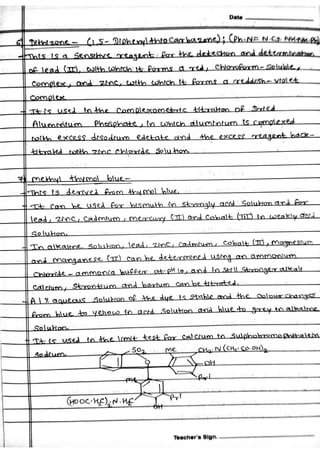 Date
6) Dithizone - (1.5- Diphenylthiocarbazone); (Ph.N=N.CS.NH.NH.Ph)
- This is a sensitive reagent for the detection and determination
of lead (II), with which it forms a red, chloroform-soluble,
complex, and zinc, with which it forms a reddish-violet
complex.
- It is used in the complexometric titration of Dried
Aluminium Phosphate, in which aluminium is complexed
with excess disodium edetate and the excess reagent back-
titrated with zinc chloride solution.
7) methyl thymol blue-
- This is derived from thymol blue.
- It can be used for bismuth in strongly acid solution and for
lead, zinc, cadmium, mercury (II) and Cobalt (III) in weakly acid
solution.
- In alkaline solution, lead, zinc, cadmium, cobalt (II), magnesium
and manganese (II) can be determined using an ammonium
chloride - ammonia buffer at pH 10, and in still stronger alkali
calcium, strontium and barium can be titrated.
- A 1% aqueous solution of the dye is stable and the colour changes
from blue to yellow in acid solution and blue to grey in alkaline
solution.
- It is used in the limit test for calcium in sulphobromophthalein
sodium.
SO2 Me CH2.N(CH2.CO.OH)2
OH
Me Pri
(HOOC.H2C)2.N.H2C Pri
OH
Teacher's Sign.